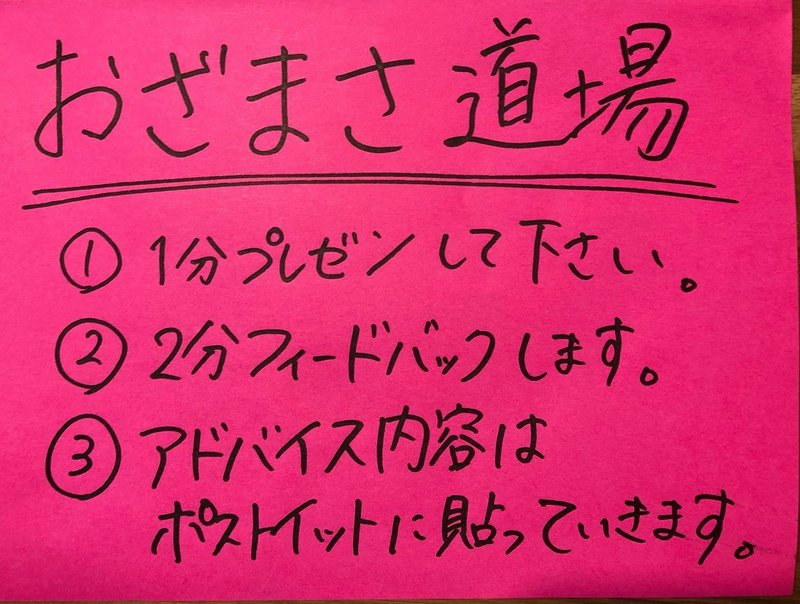 おざまさ道場
① 1分プレゼンして下さい。
② 2分フィードバックします。
③ アドバイス内容は
ポストイットに貼っていきます。